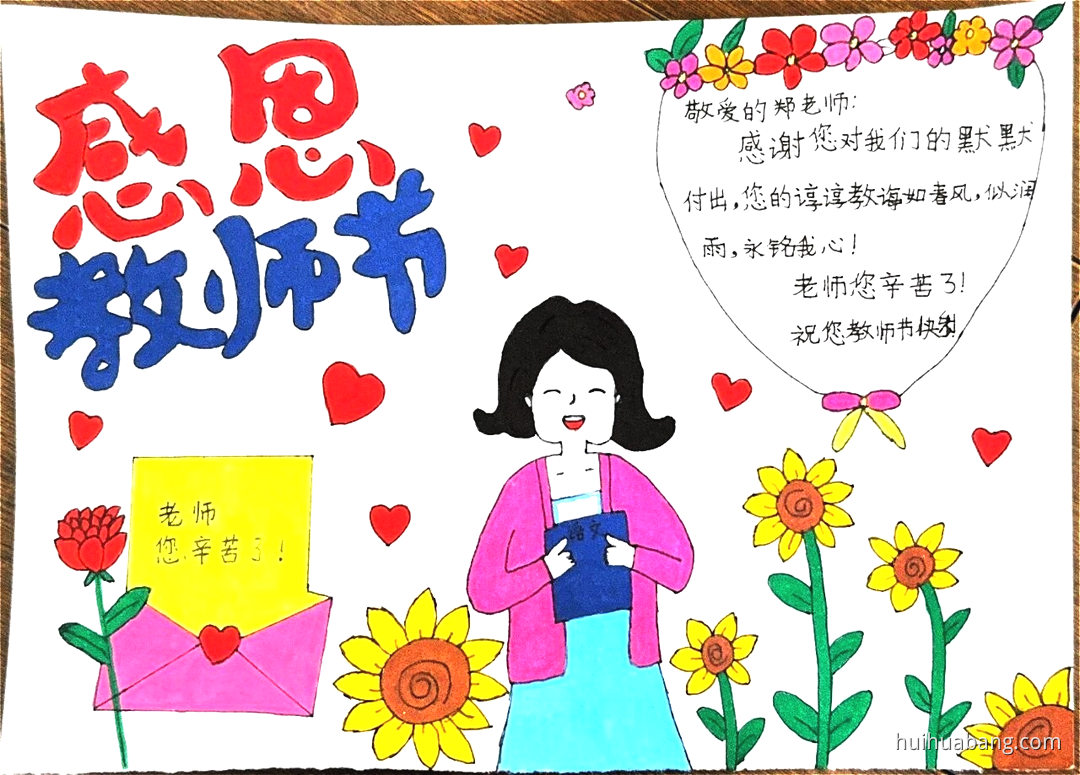 感恩
教师节
敬爱的郑老师:
感谢您对我们的默默
付出,您的谆谆教诲如春风,似润
雨,永铭我心!
老师您辛苦了!
祝您教师节快乐!
老师
您辛苦了!
语文
huihuabang.com